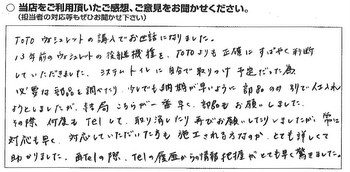 ○ 当店をご利用頂いたご感想、ご意見をお聞かせください。
(担当者の対応等もぜひお聞かせ下さい)
TOTO ウォシュレットの購入でお世話になりました。
15年前のウォシュレットの後継機種を、TOTOよりも正確にすばやく判断
していただきました。システムトイレに自分で取りつけ予定だった為、
必要な部品を調べたり、少しでも納期が早いように部品のみ別で仕入れ
ようとしましたが、結局こちらが一番早く、部品もお願いしました。
その際、何度もTelして、取り消したり再びお願いしたりしましたが、常に
対応も早く、対応していただいた方も施工される方なのか、とても詳しくて
助かりました。再Telの際、Telの履歴からの情報把握がとても早く驚きました。